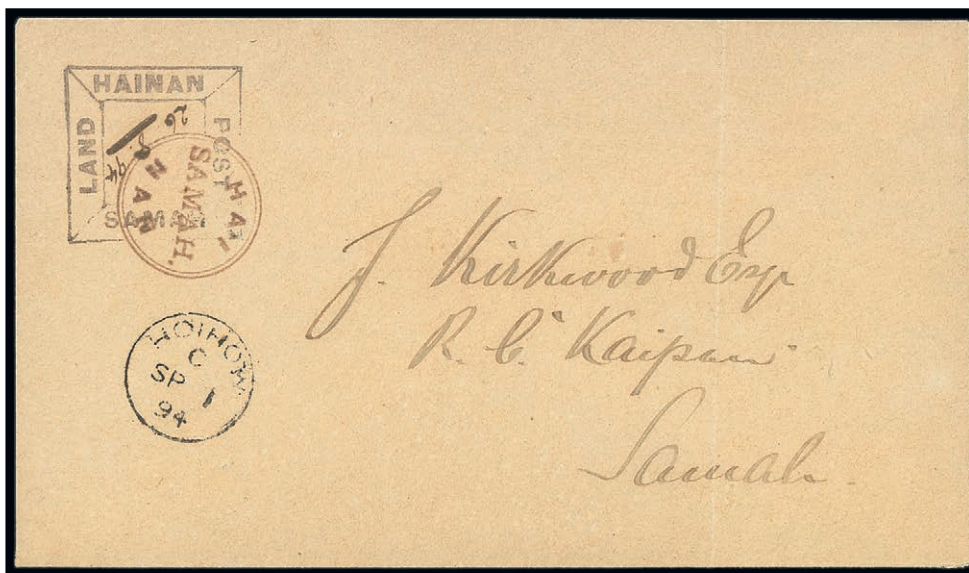 HAINAN
LAND
POST
SAMAH
26/8 94
HAI
SAMAH.
NAN
HOIHOW
C
SP 1
94
J. Kirkwood Esq
R. C. "Kaipan"
Samah.